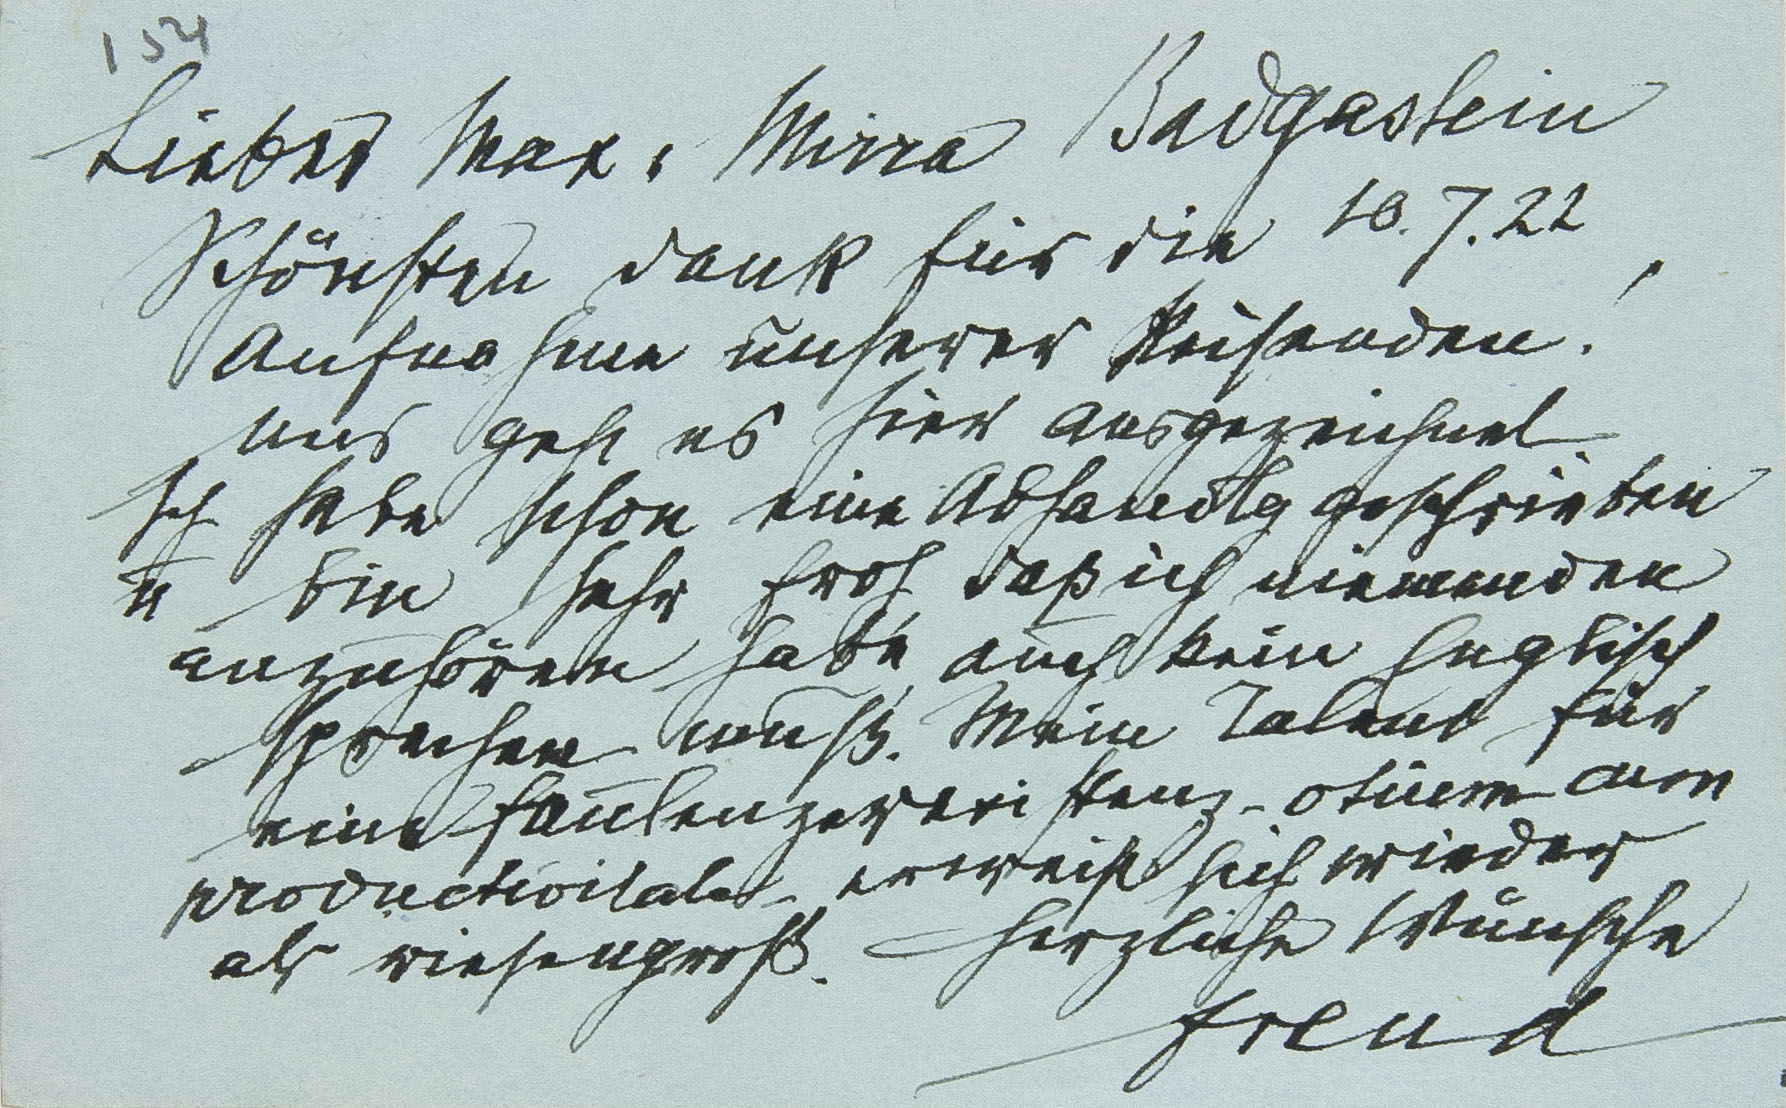 154
Lieber Max, Mirra Badgastein
10.7.22
Schönsten Dank für die
Aufnahme unserer Reisenden.
Uns geht es hier ausgezeichnet
Ich habe schon eine Abhandlg geschrieben
u bin sehr froh daß ich niemanden
anzuhören habe, auch kein Englisch
sprechen muß. Mein Talent für
eine Faulenzerexistenz - otium cum
productivitate - erweist sich wieder
als riesengroß. Herzliche Wünsche
Freud